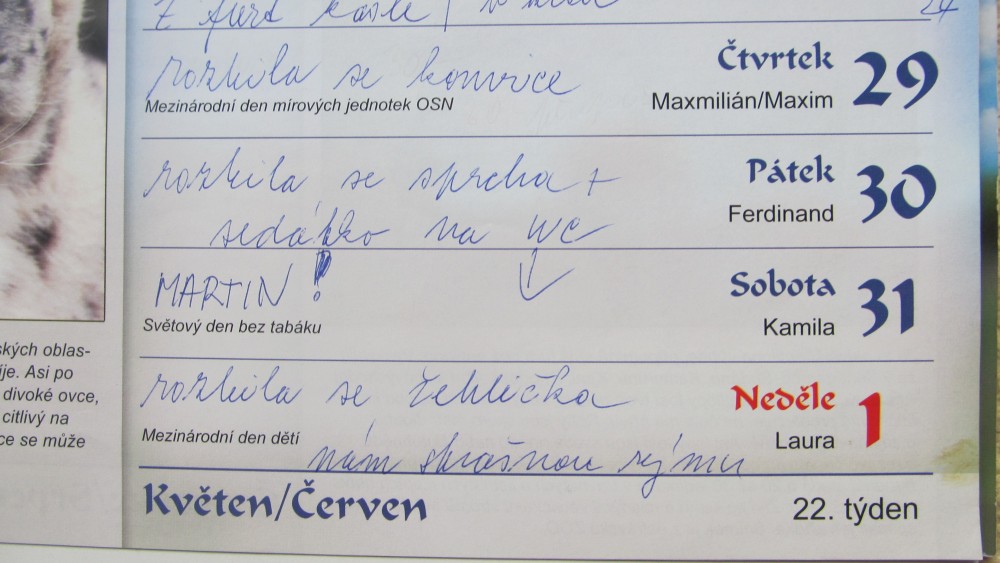 z furt kašle
24
rozbila se konvice
Čtvrtek 29
Mezinárodní den mírových jednotek OSN
Maxmilián/Maxim
rozbila se sprcha +
Pátek 30
sedátko na WC
Ferdinand
MARTIN !
Sobota 31
Světový den bez tabáku
Kamila
rozbila se žehlička
Neděle 1
Mezinárodní den dětí
Laura
mám strašnou rýmu
Květen/Červen
22. týden
ských oblas-
ije. Asi po
divoké ovce,
citlivý na
ce se může